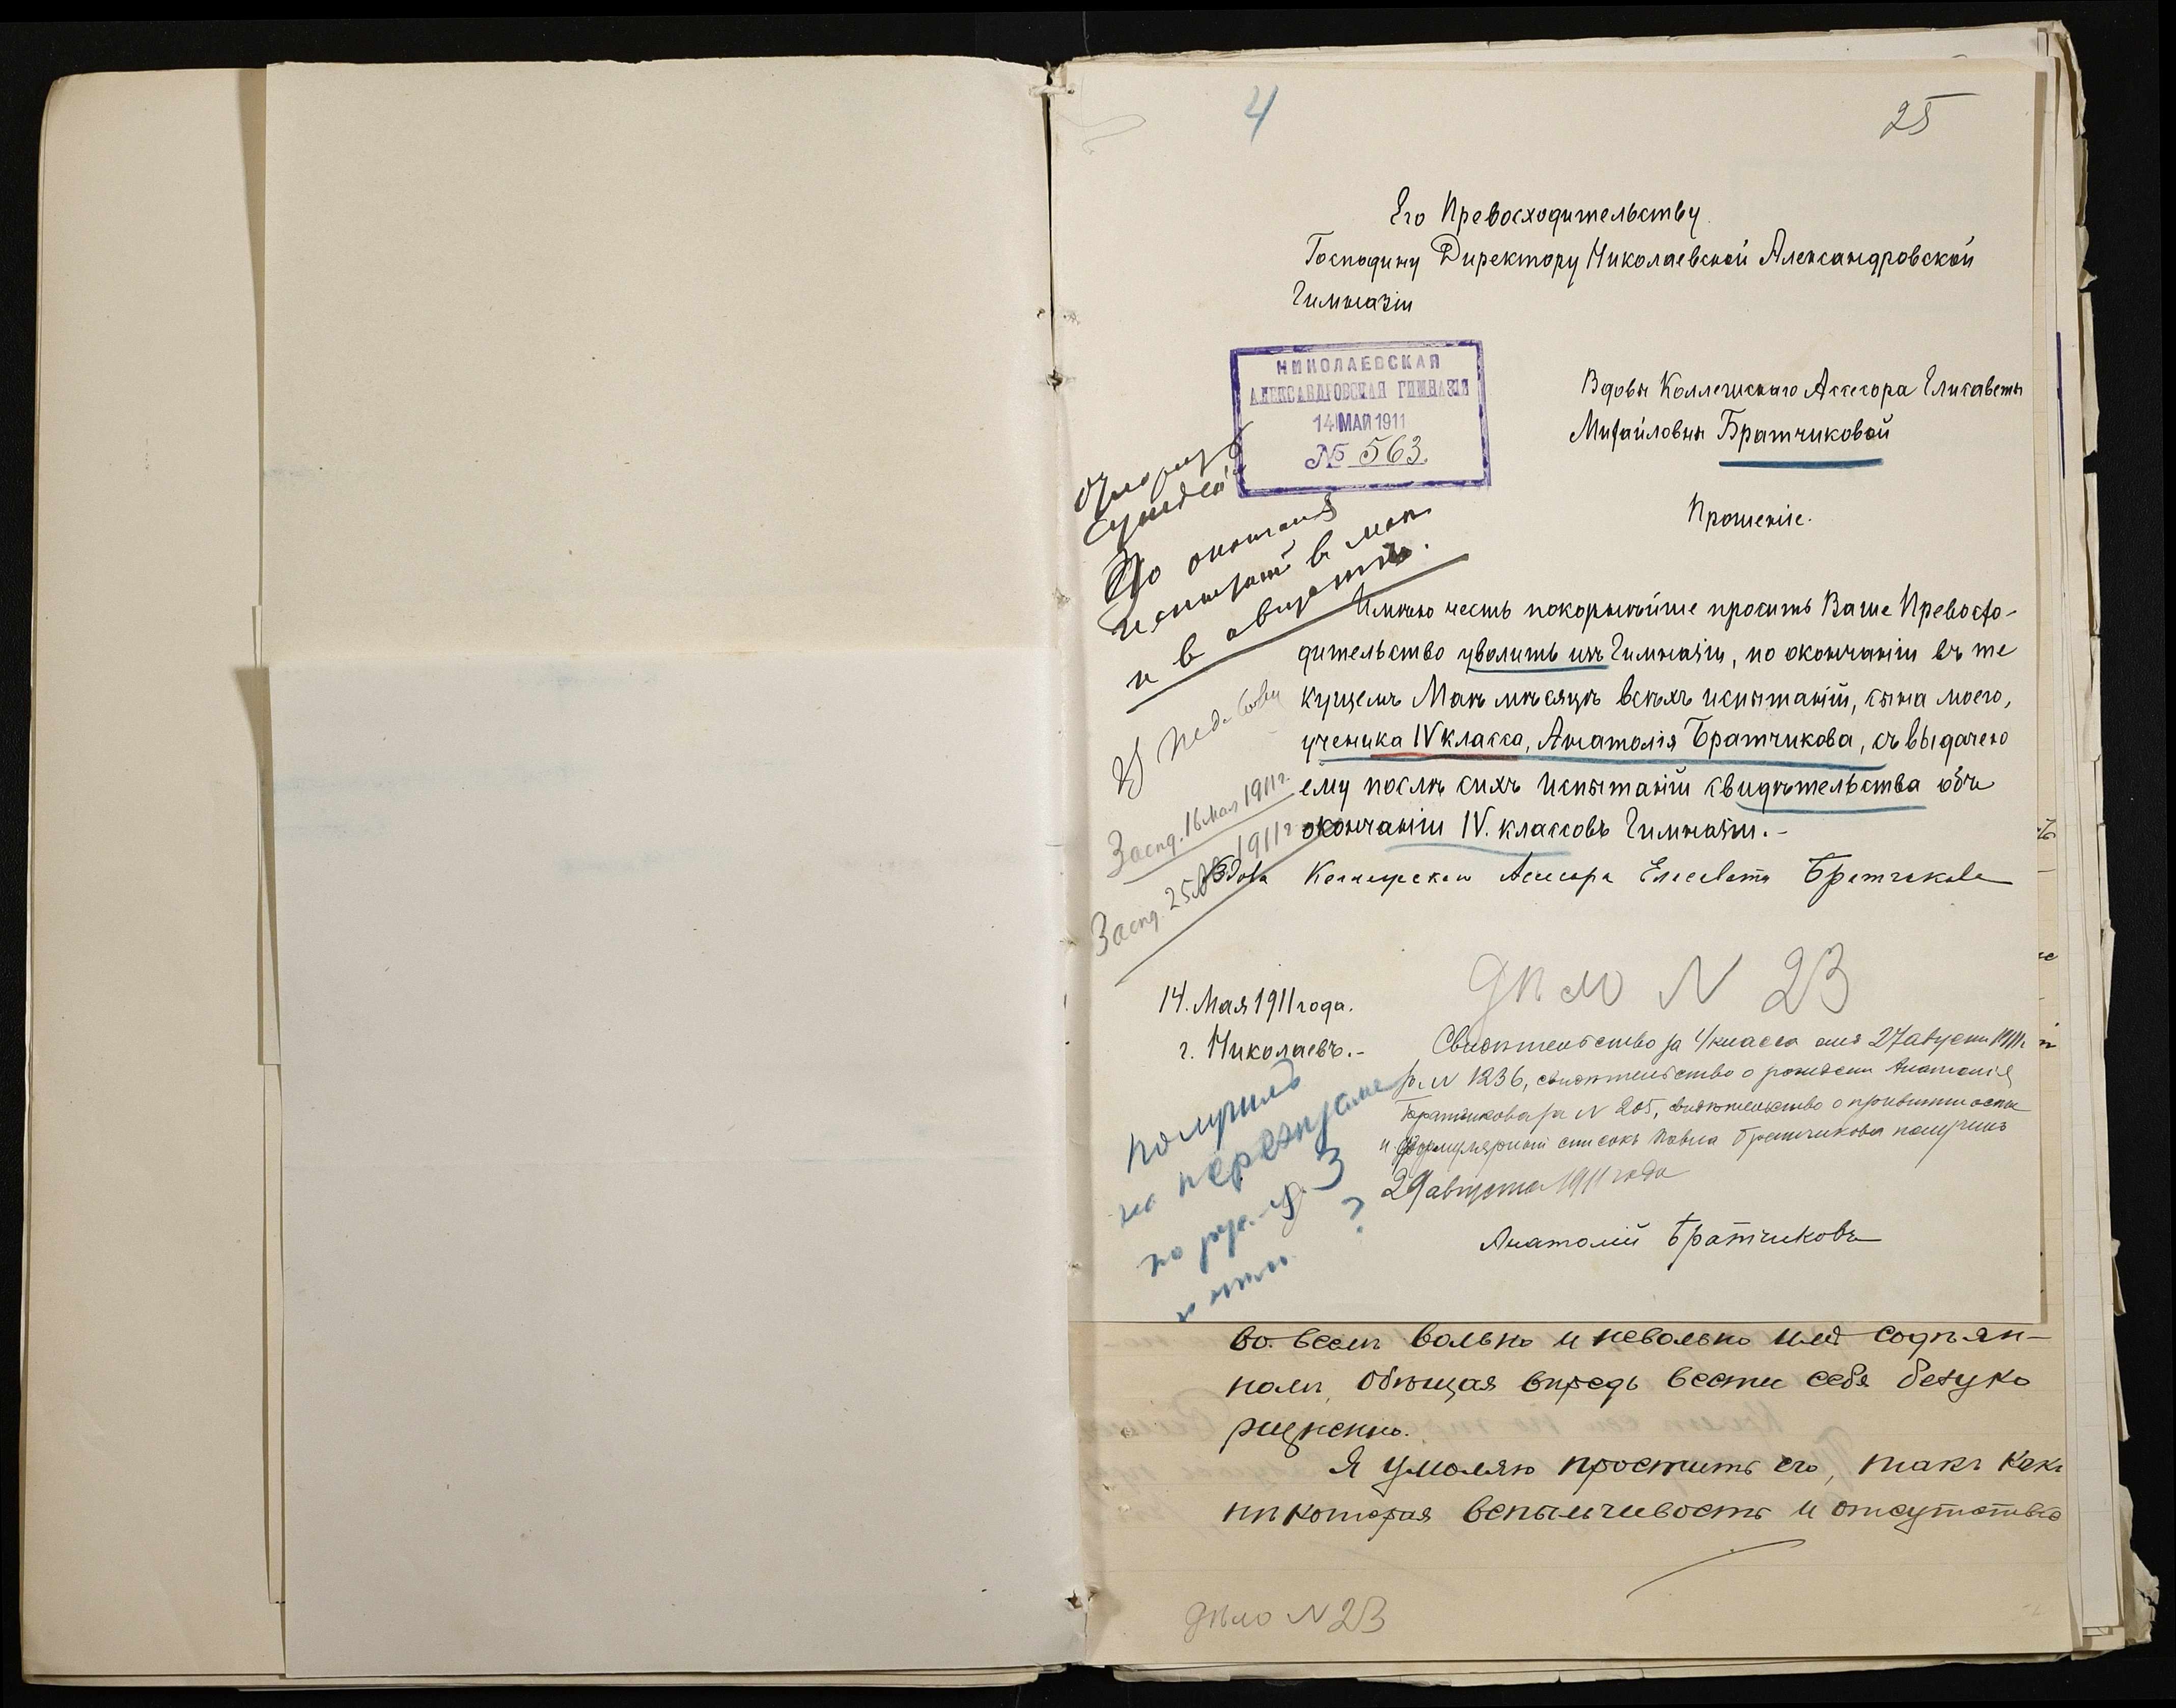 4
25
Его Превосходительству
Господину Директору Николаевской Александровской
Гимназіи
НИКОЛАЕВСКАЯ
АЛЕКСАНДРОВСКАЯ ГИМНАЗІЯ
14 МАЙ 1911
№ 563.
Вдовы Коллежскаго Ассесора Елисаветы
Михайловны Братчиковой
Прошеніе.
По окончанія
испытаній в мае
и в августѣ.
Имѣю честь покорнѣйше просить Ваше Превосхо-
дительство уволить изъ Гимназіи, по окончаніи въ те
кущемъ Маѣ мѣсяцѣ всѣхъ испытаній, сына моего,
ученика IV класса, Анатолія Братчикова, съ выдачею
ему послѣ сихъ испытаній свидѣтельства объ
окончаніи IV. классовъ Гимназіи.-
Засѣд. 16 мая 1911 г.
Засѣд. 25 1911 г
Вдова Коллежскаго Ассесора Елисавета Братчикова
14. Мая 1911 года.
г. Николаевъ.-
дѣло N 23
Свидѣтельство за 4 класса отъ 27 августа 1911 г
за N 1236, свидѣтельство о рожденіи Анатолія
Братчикова за N 205, свидѣтельство о привитіи оспы
и формулярный списокъ Павла Братчикова получилъ
29 августа 1911 года
Анатолій Братчиковъ
получилъ
на переэкзаме
по 3
?
во всемъ вольно и невольно имъ содѣян-
номъ, обѣщая впредь вести себя безуко
ризненно.
Я умоляю простить его, такъ какъ
нѣкоторая вспыльчивость и отсутствіе
дѣло N 23